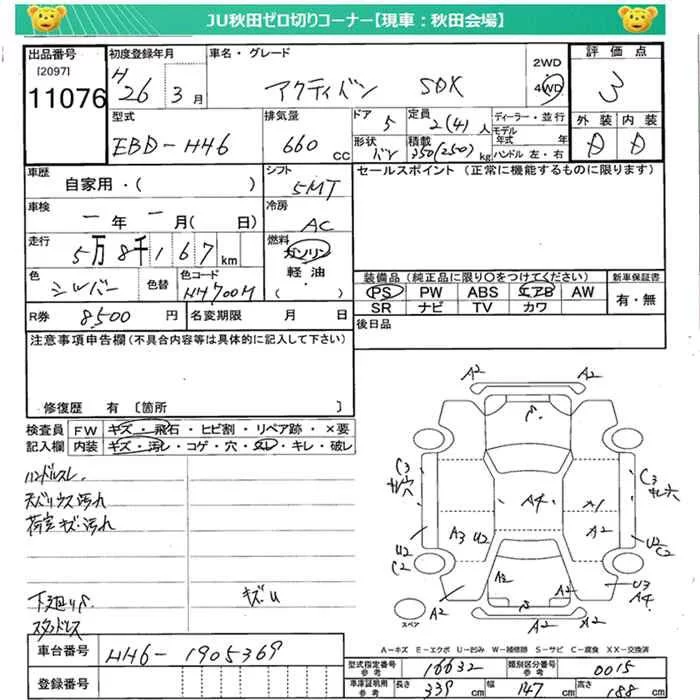 JU秋田ゼロ切りコーナー【現車：秋田会場】
出品番号 [2097] 11076
初度登録年月 H26年3月
車名・グレード アクティバン SDK
2WD 4WD
評価点 3
型式 EBD-HH6
排気量 660 cc
ドア 5 形状 バン
定員 2(4)人 積載 350(250)kg
ディーラー・並行 モデル年式 年 ハンドル 左・右
外装 内装
車歴 自家用・( )
シフト 5MT
セールスポイント (正常に機能するものに限ります)
車検 ー年ー月( 日)
冷房 AC
走行 5万8千167km
燃料 ガソリン 軽油 ( )
色 シルバー 色替 色コード NH700M
装備品 (純正品に限り○をつけてください) 新車保証書
PS PW ABS エアB AW 有・無
SR ナビ TV カワ
R券 8,500円 名変期限 月 日
後日品
注意事項申告欄 (不具合内容等は具体的に記入して下さい)
修復歴 有 〔箇所 〕
検査員記入欄
FW キズ・飛石・ヒビ割・リペア跡・×要
内装 キズ・汚レ・コゲ・穴・スレ・キレ・破レ
ハンドルスレ
天バリウス汚れ
荷室キズ・汚れ
キズU
下廻りS
A2 A2
C3 C3
A4 A1
A3 U2 A2
U2 U2
C2 C2
A2 A2 U3
A2 A2 A4
スペア
A－キズ E－エクボ U－凹み W－補修跡 S－サビ C－腐食 XX－交換済
車台番号 HH6-1905369
型式指定番号 参考 16632 類別区分番号 参考 0015
登録番号
車庫証明用 参考 長さ 339cm 幅 147cm 高さ 188cm